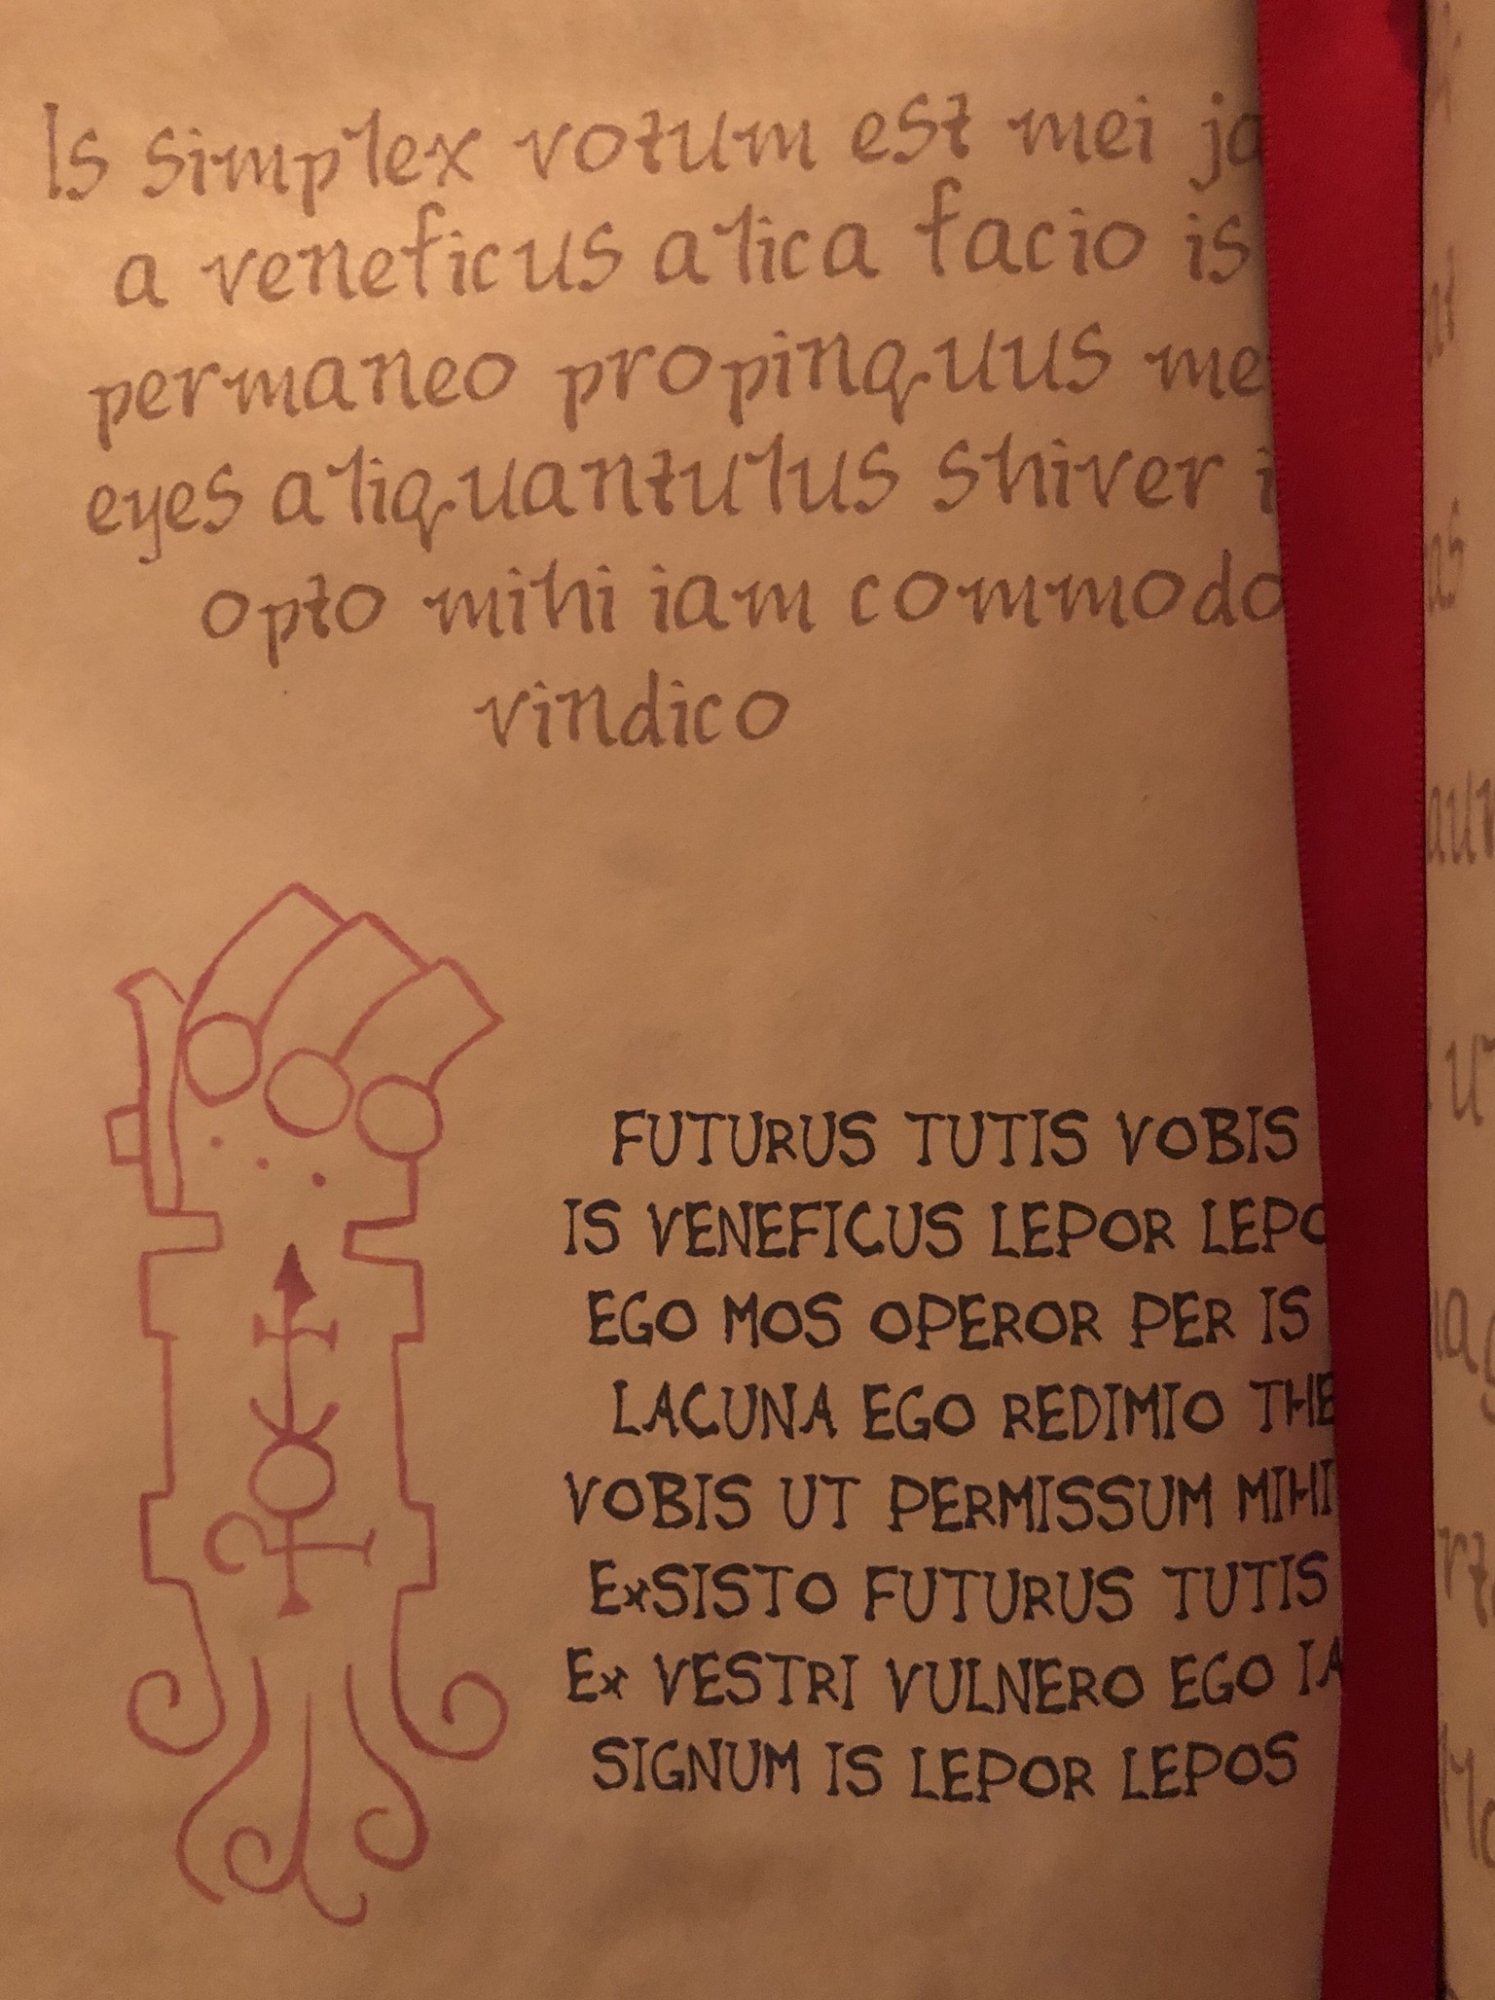 Is simplex votum est mei
a veneficus alica facio is
permaneo propinquus
eyes aliquantulus shiver
opto mihi iam commodo
vindico
FUTURUS TUTIS VOBIS
IS VENEFICUS LEPOR
EGO MOS OPEROR PER IS
LACUNA EGO REDIMIO
VOBIS UT PERMISSUM MIHI
EXSISTO FUTURUS TUTIS
EX VESTRI VULNERO EGO
SIGNUM IS LEPOR LEPOS